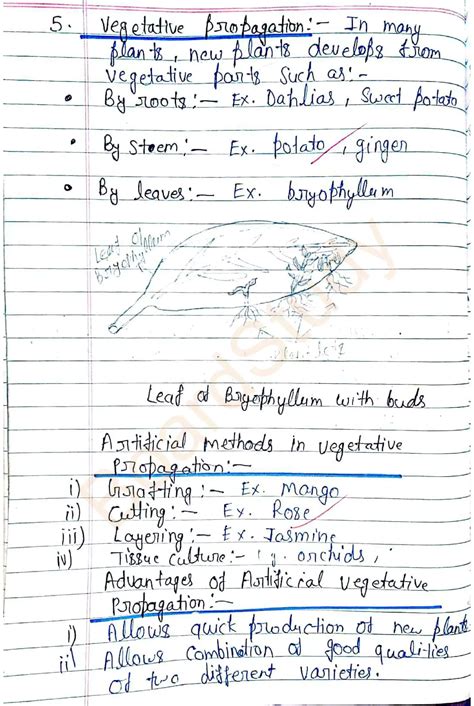 5. Vegetative Propagation:- In many
plants, new plants develops from
vegetative parts such as:-
• By roots:- Ex. Dahlias, Sweet potato
• By Stem:- Ex. potato, ginger
• By leaves:- Ex. bryophyllum
Leaf of
Bryophyllum
Leaf of Bryophyllum with buds
Artificial methods in vegetative
Propagation:-
i) Grafting:- Ex. Mango
ii) Cutting:- Ex. Rose
iii) Layering:- Ex. Jasmine
iv) Tissue culture:- e.g. orchids,
Advantages of Artificial vegetative
Propagation:-
i) Allows quick production of new plants
ii) Allows combination of good qualities
of two different varieties.